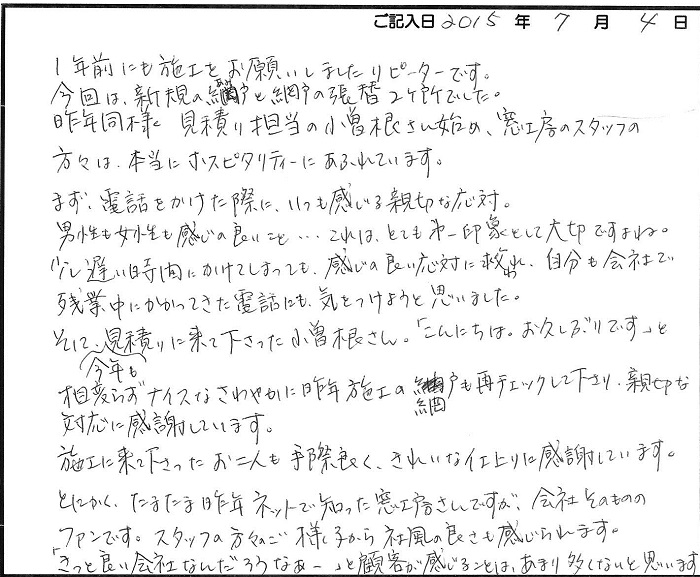 ご記入日 2015 年 7 月 4 日
1年前にも施工をお願いしましたリピーターです。
今回は、新規の網戸と網戸の張替2ヶ所でした。
昨年同様、見積り担当の小曽根さん始め、窓工房のスタッフの
方々は、本当にホスピタリティーにあふれています。
まず、電話をかけた際に、いつも感じる親切な応対。
男性も女性も感じの良いこと…これは、とても第一印象として大切ですよね。
少し遅い時間にかけてしまっても、感じの良い応対に救われ、自分も会社で
残業中にかかってきた電話にも、気をつけようと思いました。
そして、見積りに来て下さった小曽根さん。「こんにちは。お久しぶりです」と
今年も
相変らずナイスなさわやかに昨年施工の網戸も再チェックして下さり、親切な
対応に感謝しています。
施工に来て下さったお二人も手際良く、きれいな仕上りに感謝しています。
とにかく、たまたま昨年ネットで知った窓工房さんですが、会社そのものの
ファンです。スタッフの方々のご様子から社風の良さも感じられます。
「きっと良い会社なんだろうなぁー」と顧客が感じることは、あまり多くないと思います